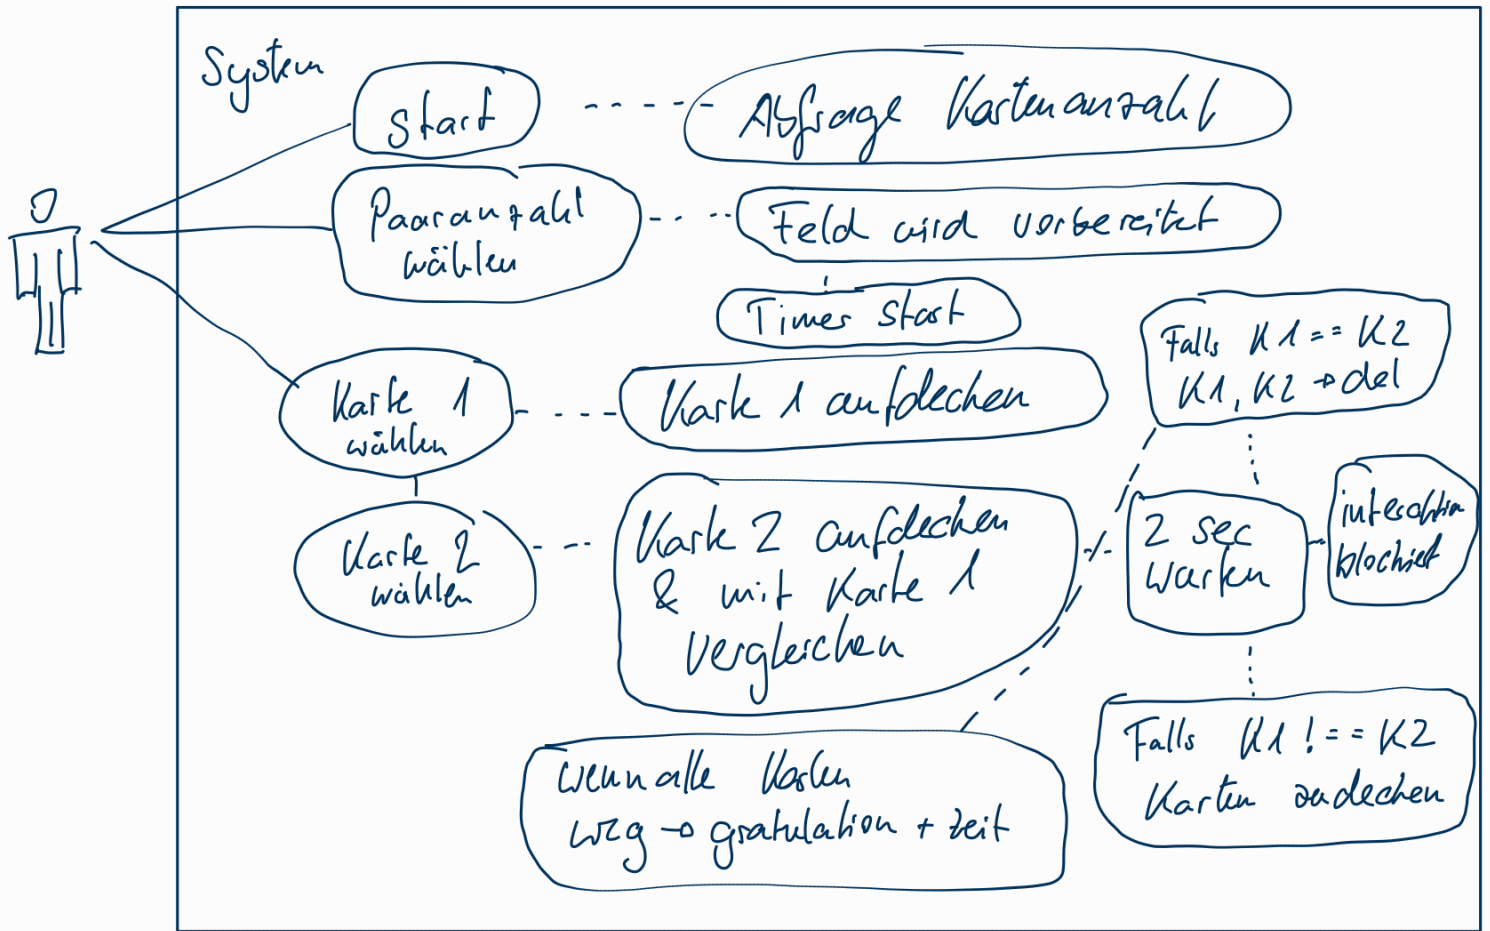 System
Start
Abfrage Kartenanzahl
Paaranzahl
wählen
Feld wird vorbereitet
Timer Start
Karte 1
wählen
Karte 1 aufdecken
Falls K1 == K2
K1, K2 → del
Karte 2
wählen
Karte 2 aufdecken
& mit Karte 1
vergleichen
2 sec
warten
interaktion
blockiert
wenn alle Karten
weg → gratulation + zeit
Falls K1 !== K2
Karten zudecken